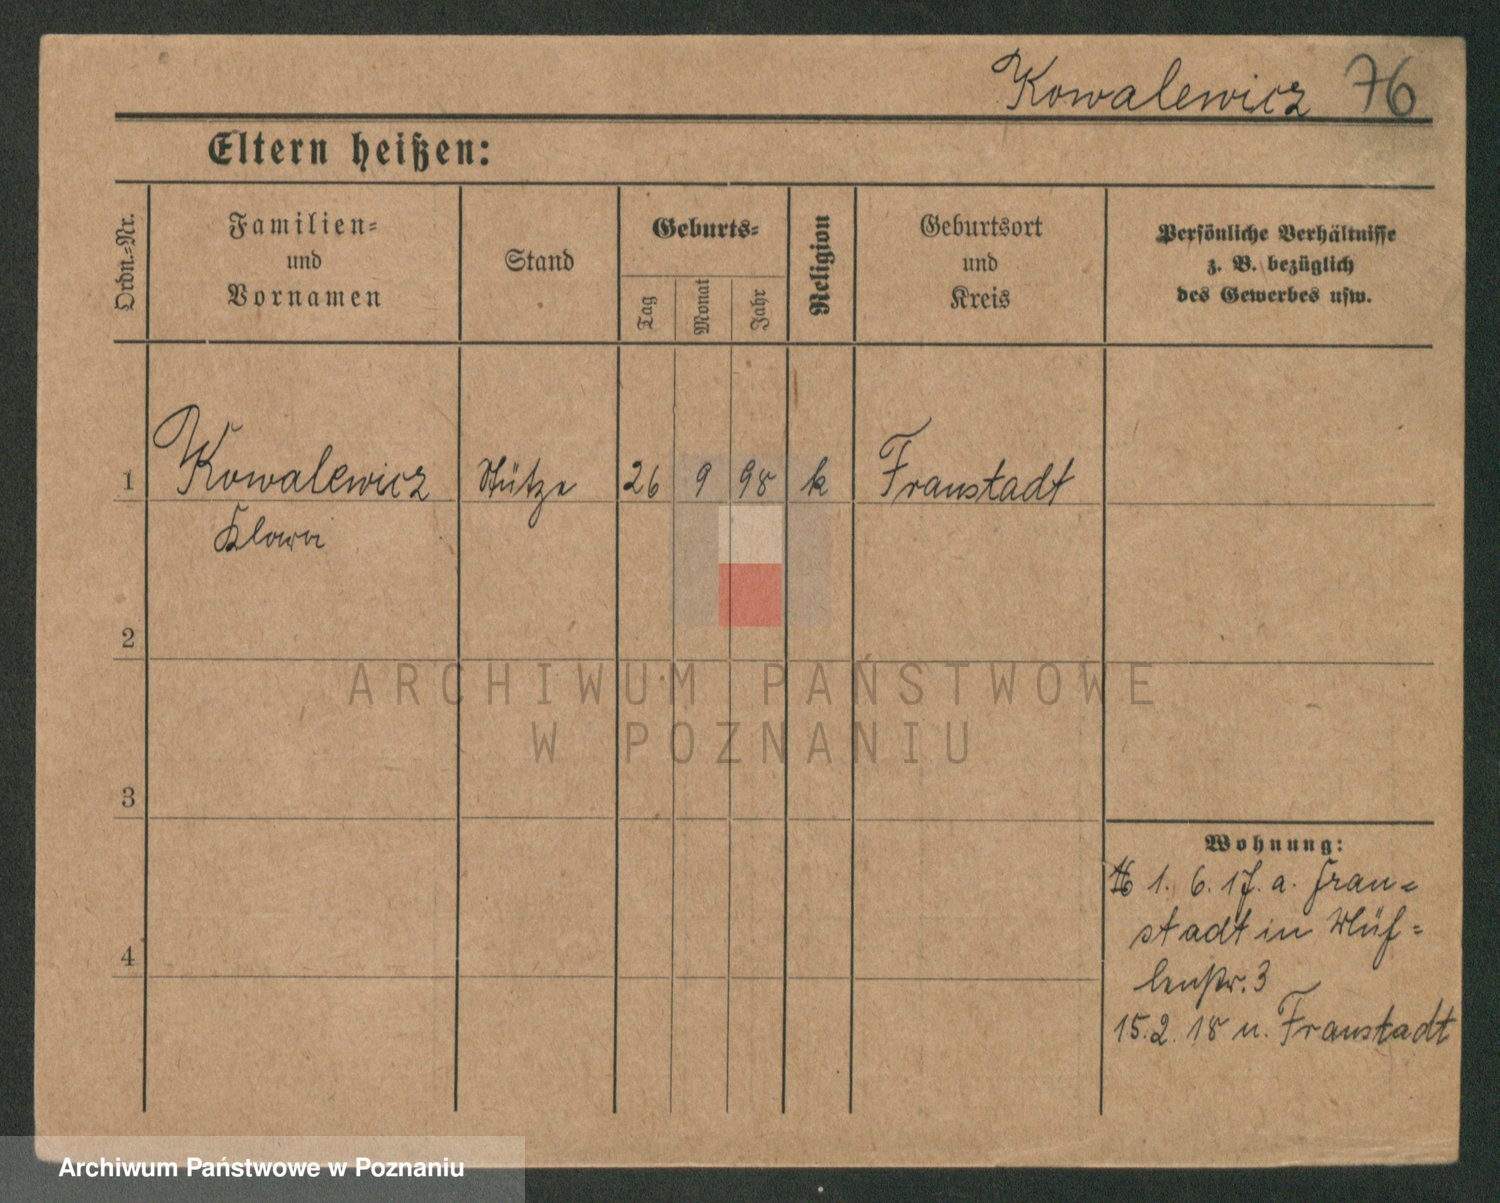 Kowalewicz 76
Eltern heißen:
Ordn.=Nr.
Familien=
und
Vornamen
Stand
Geburts=
Tag
Monat
Jahr
Religion
Geburtsort
und
Kreis
Persönliche Verhältnisse
z. B. bezüglich
des Gewerbes usw.
1 Kowalewicz Stütze 26 9 98 k Fraustadt
Klara
2
3
4
Wohnung:
1. 6. 17. a. Frau=
stadt in Müh=
lenstr. 3
15. 2. 18 n. Fraustadt
ARCHIWUM PAŃSTWOWE
W POZNANIU
Archiwum Państwowe w Poznaniu